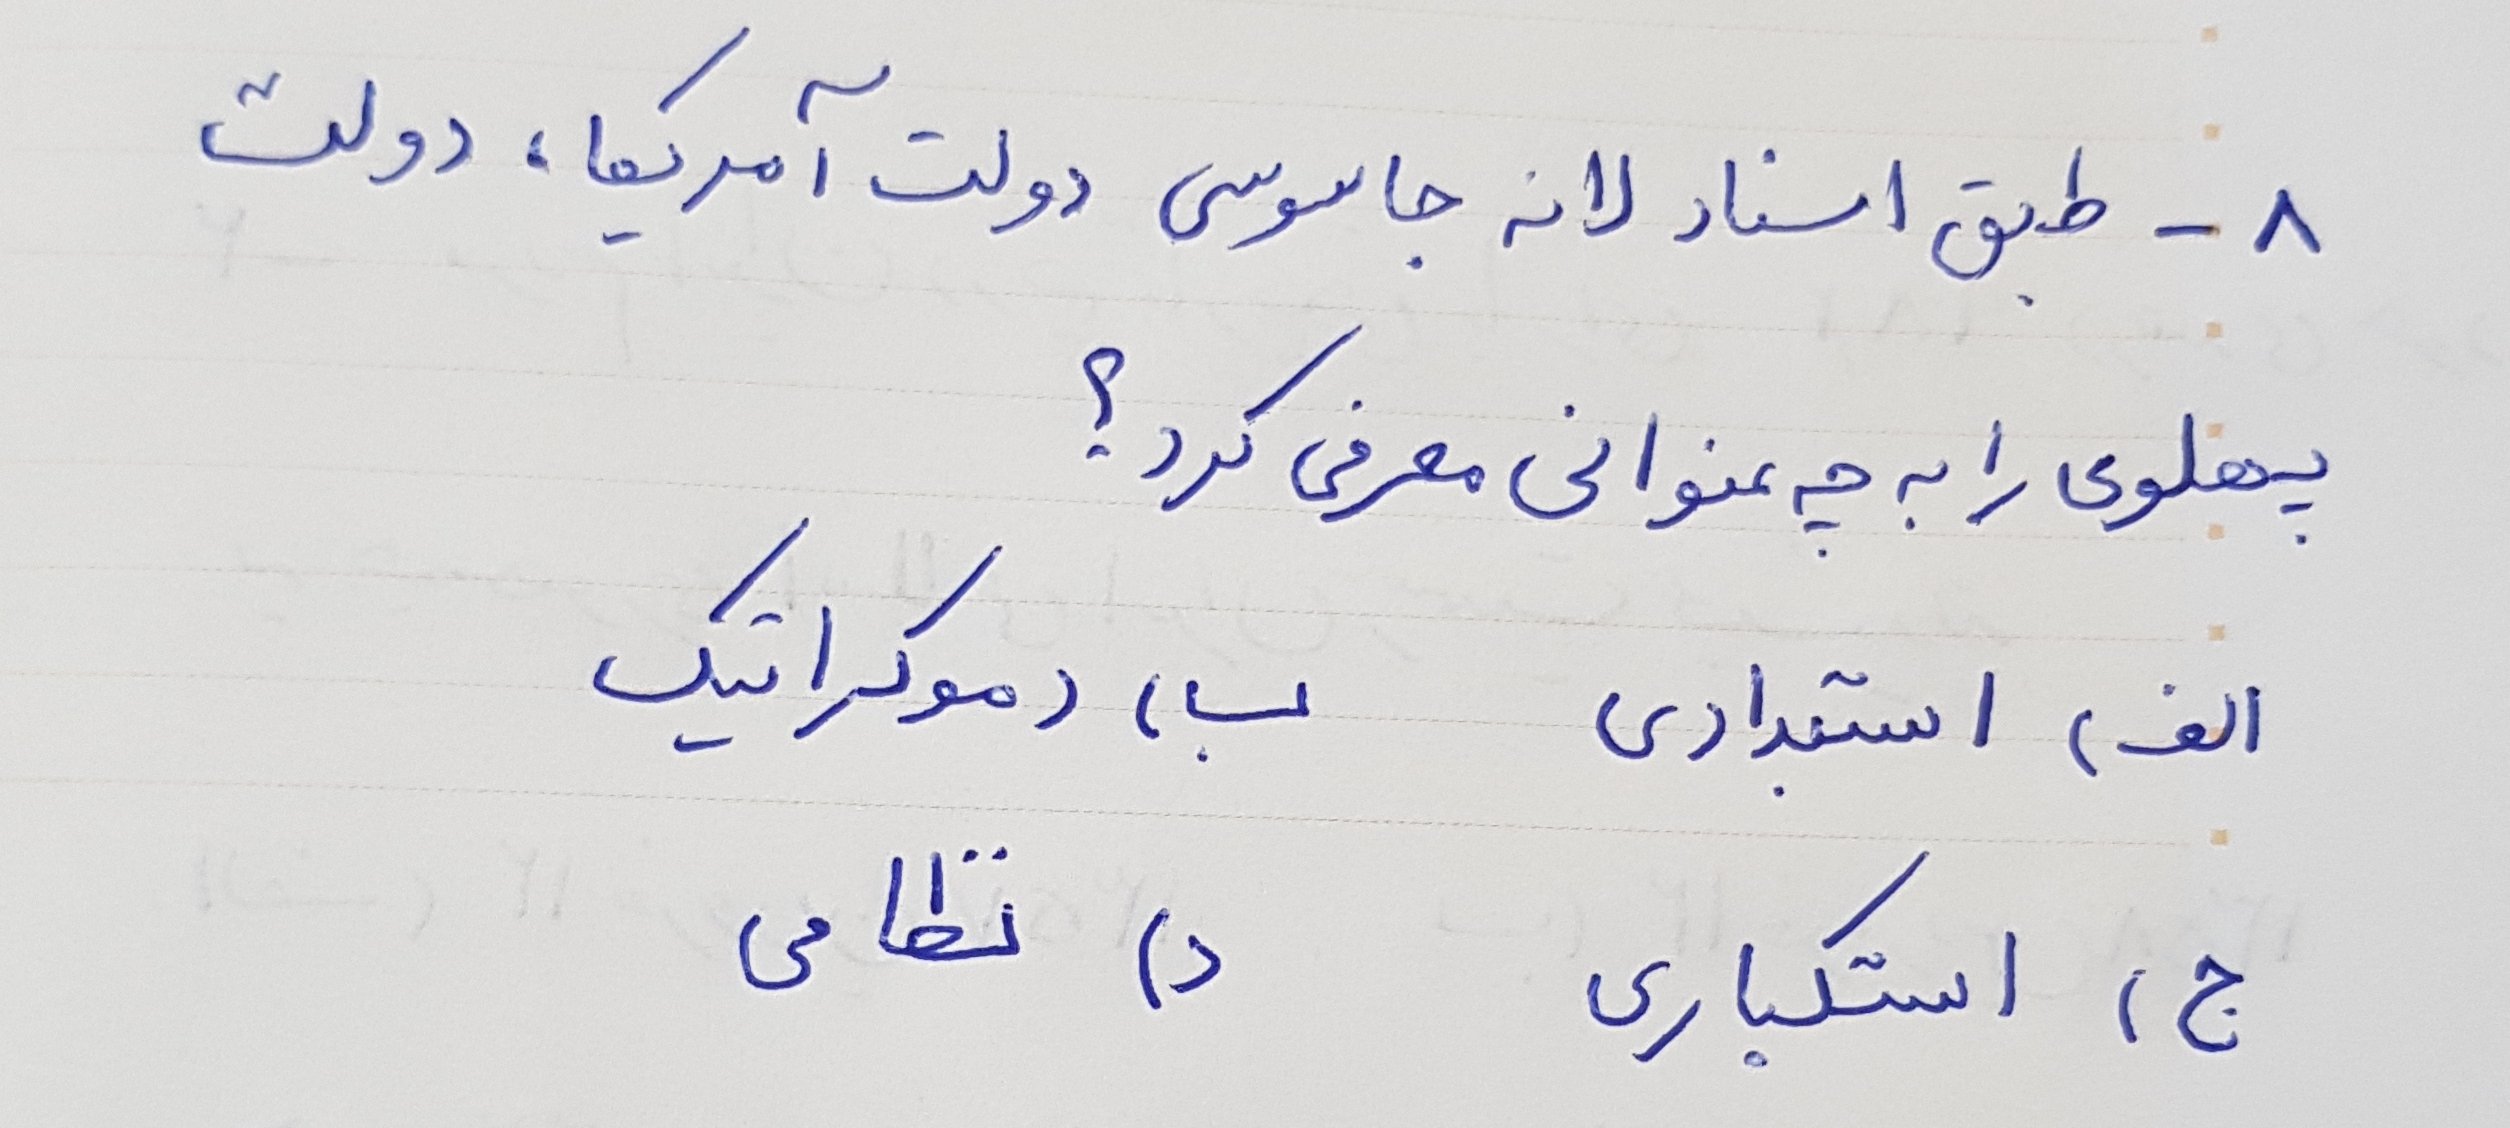 ۸ - طبق اسناد لانه جاسوسی دولت آمریکا، دولت
پهلوی را به چه عنوانی معرفی کرد؟
الف) استبدادی ب) دموکراتیک
ج) استکباری د) نظامی